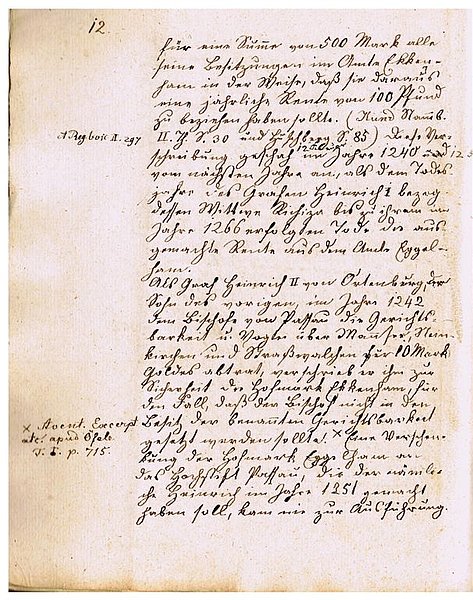 12
für eine Summe von 500 Mark alle
seine Besitzungen im Amte Ekken-
ham in der Weise, daß sie daraus
eine jährliche Rente von 100 Pfund
zu beziehen haben sollte. (Hund Stammb.
A Reg boic II. 297
II. Th. S. 30 und Huschberg S. 85) Diese Ver-
schreibung geschah im Jahre 1240 und
vom nächsten Jahre an, als dem Todes-
jahre des Grafen Heinrich I bezog
dessen Wittwe Richiza bis zu ihrem im
Jahre 1266 erfolgten Tode die aus-
gemachte Rente aus dem Amte Eggel-
ham.
Als Graf Heinrich II von Ortenburg, der
Sohn des vorigen, im Jahre 1242
dem Bischofe von Passau die Gerichts-
barkeit u. Vogtei über Mautsee, Stein-
kirchen und Straßwalchen für 10 Mark
Goldes abtrat, verschrieb er ihm zur
Sicherheit die Hofmark Ekkenham, für
den Fall, daß der Bischof nicht in den
x Avent. Excerpt
Besitz der benannten Gerichtsbarkeit
etc. apud Öfele
gesetzt werden sollte. x Eine Verschen-
T. I. p. 715.
kung der Hofmark Eggelham an
das Hochstift Passau, die der nämli-
che Heinrich im Jahre 1251 gemacht
haben soll, kam nie zur Ausführung.